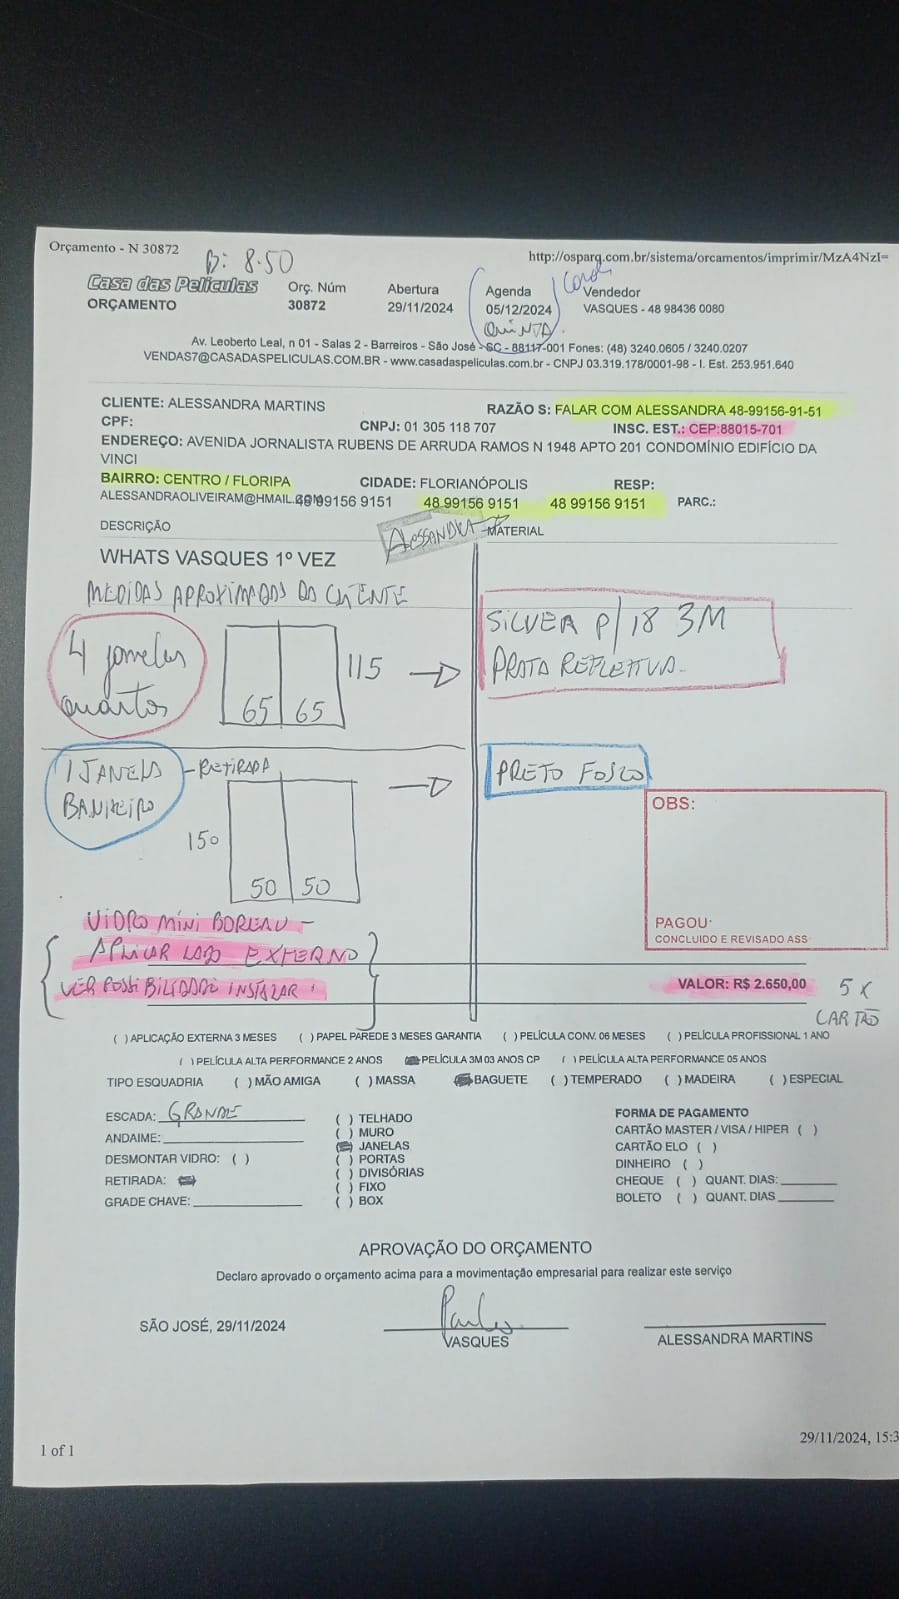 Orçamento - N 30872
http://osparq.com.br/sistema/orcamentos/imprimir/MzA4NzI=
8.50
Casa das Películas Orç. Núm Abertura Agenda Vendedor
ORÇAMENTO 30872 29/11/2024 05/12/2024 VASQUES - 48 98436 0080
QUINTA
Av. Leoberto Leal, n 01 - Salas 2 - Barreiros - São José - SC - 88117-001 Fones: (48) 3240.0605 / 3240.0207
VENDAS7@CASADASPELICULAS.COM.BR - www.casadaspeliculas.com.br - CNPJ 03.319.178/0001-98 - I. Est. 253.951.640
CLIENTE: ALESSANDRA MARTINS RAZÃO S: FALAR COM ALESSANDRA 48-99156-91-51
CPF: CNPJ: 01 305 118 707 INSC. EST.: CEP:88015-701
ENDEREÇO: AVENIDA JORNALISTA RUBENS DE ARRUDA RAMOS N 1948 APTO 201 CONDOMÍNIO EDIFÍCIO DA
VINCI
BAIRRO: CENTRO / FLORIPA CIDADE: FLORIANÓPOLIS RESP:
ALESSANDRAOLIVEIRAM@HMAIL.COM 48 99156 9151 48 99156 9151 48 99156 9151 PARC.:
DESCRIÇÃO ALESSANDRA MATERIAL
WHATS VASQUES 1º VEZ
MEDIDAS APROXIMADAS DA CLIENTE
4 janelas
quartos
65 65
115
SILVER P/18 3M
PRATA REFLETIVA.
1 JANELA
BANHEIRO
- RETIRADA
150
50 50
PRETO FOSCO
OBS:
PAGOU:
CONCLUIDO E REVISADO ASS
VIDRO MINI BOREAU -
APLICAR LADO EXTERNO
VER POSSIBILIDADE INSTALAR
VALOR: R$ 2.650,00 5 X
CARTÃO
( ) APLICAÇÃO EXTERNA 3 MESES ( ) PAPEL PAREDE 3 MESES GARANTIA ( ) PELÍCULA CONV. 06 MESES ( ) PELÍCULA PROFISSIONAL 1 ANO
( ) PELÍCULA ALTA PERFORMANCE 2 ANOS ( ) PELÍCULA 3M 03 ANOS CP ( ) PELÍCULA ALTA PERFORMANCE 05 ANOS
TIPO ESQUADRIA ( ) MÃO AMIGA ( ) MASSA ( ) BAGUETE ( ) TEMPERADO ( ) MADEIRA ( ) ESPECIAL
ESCADA: GRANDE
ANDAIME:
DESMONTAR VIDRO: ( )
RETIRADA: ( )
GRADE CHAVE:
( ) TELHADO
( ) MURO
( ) JANELAS
( ) PORTAS
( ) DIVISÓRIAS
( ) FIXO
( ) BOX
FORMA DE PAGAMENTO
CARTÃO MASTER / VISA / HIPER ( )
CARTÃO ELO ( )
DINHEIRO ( )
CHEQUE ( ) QUANT. DIAS:
BOLETO ( ) QUANT. DIAS
APROVAÇÃO DO ORÇAMENTO
Declaro aprovado o orçamento acima para a movimentação empresarial para realizar este serviço
SÃO JOSÉ, 29/11/2024
VASQUES
ALESSANDRA MARTINS
29/11/2024, 15:3
1 of 1